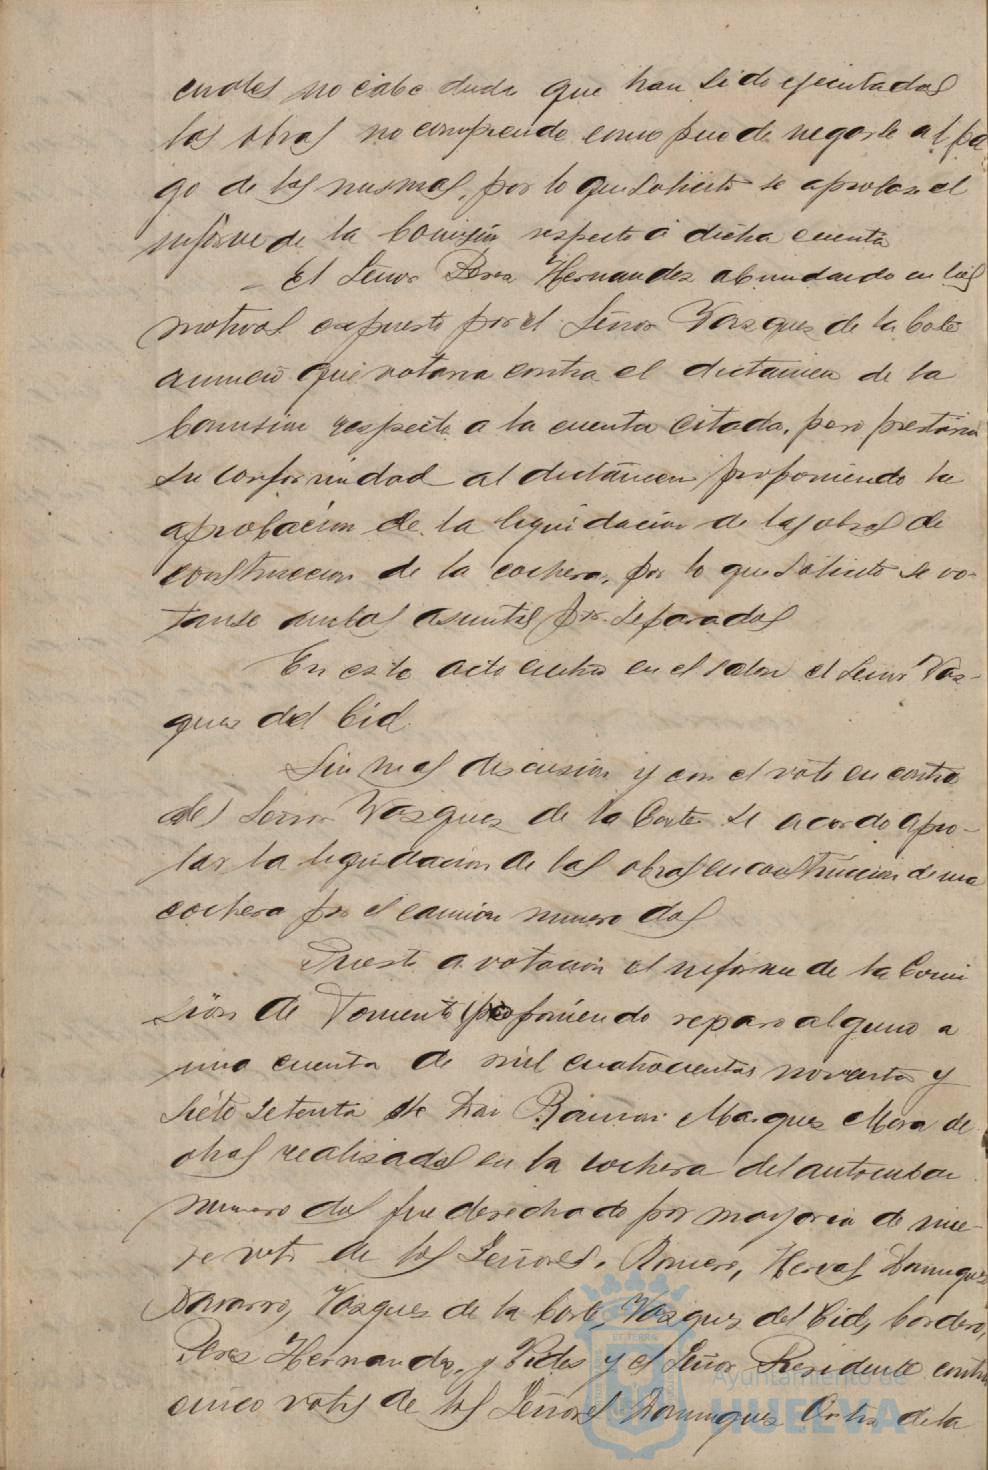 cuales no cabe duda que han sido ejecutadas
las obras no comprende como puede negarse al pa
go de las mismas, por lo que solicito se aprobase el
informe de la Comisión respecto á dicha cuenta
El Señor Peres Hernandes abundando en los
motivos expuesto por el Señor Vasques de la Corte
anunció que votaria contra el dictamen de la
Comision respecto a la cuenta citada, pero prestaria
su conformidad al dictámen proponiendo la
aprobacion de la liquidacion de las obras de
construccion de la cochera, por lo que solicito se vo-
tause ambos asuntos por separados
En este acto entro en el salon el Señor Vas-
ques del Cid.
Sin mas discusión y con el voto en contra
del Señor Vasques de la Corte se acordo apro-
bar la liquidacion de las obras en construccion de una
cochera por el camion numero dos
Puesto a votación el informe de la Comi
sión de Fomento proponiendo reparo alguno a
una cuenta de mil cuatrocientas noventa y
siete setenta de Don Ramon Marques Mora de
obras realisadas en la cochera del autocuba
numero dos fue desechado por mayoria de nue-
ve votos de los Señores. Romero, Hervas Domingues
Navarro, Vasques de la Corte, Vasques del Cid, Cordero,
Peres Hernandes, y Vides y el Señor Presidente contra
cinco votos de los Señores Domingues Ortis de la
Ayuntamiento de
HUELVA